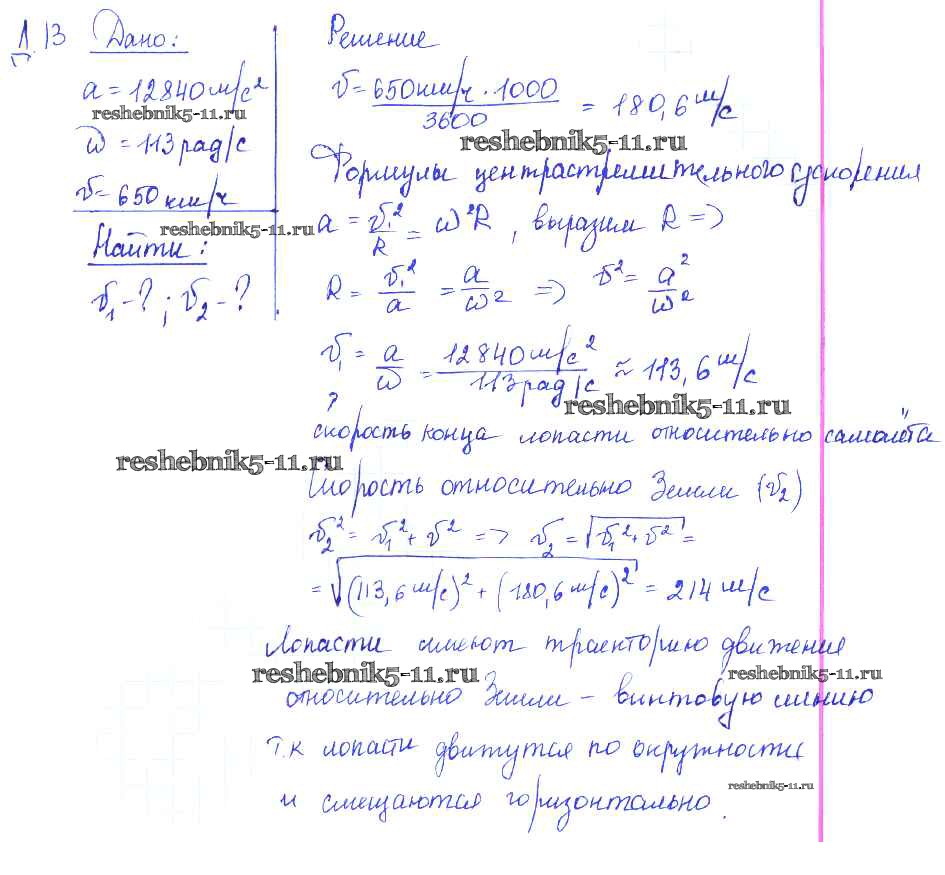 1.13 Дано:
a = 12840 м/с²
reshebnik5-11.ru
ω = 113 рад/с
v = 650 км/ч
Найти:
v₁ - ? ; v₂ - ?
Решение
v = 650 км/ч · 1000 / 3600 = 180,6 м/с
reshebnik5-11.ru
Формулы центрастремительного ускорения
reshebnik5-11.ru
a = v₁²/R = ω²R, выразим R =>
R = v₁²/a = a/ω² => v² = a²/ω²
v₁ = a/ω = 12840 м/с² / 113 рад/с ≈ 113,6 м/с
reshebnik5-11.ru
?
скорость конца лопасти относительно самолёта
reshebnik5-11.ru
Скорость относительно Земли (v₂)
v₂² = v₁² + v² => v₂ = √(v₁² + v²) =
= √((113,6 м/с)² + (180,6 м/с)²) = 214 м/с
Лопасти имеют траекторию движения
reshebnik5-11.ru reshebnik5-11.ru
относительно Земли - винтовую линию
т.к лопасти движутся по окружности
reshebnik5-11.ru
и смещаются горизонтально.